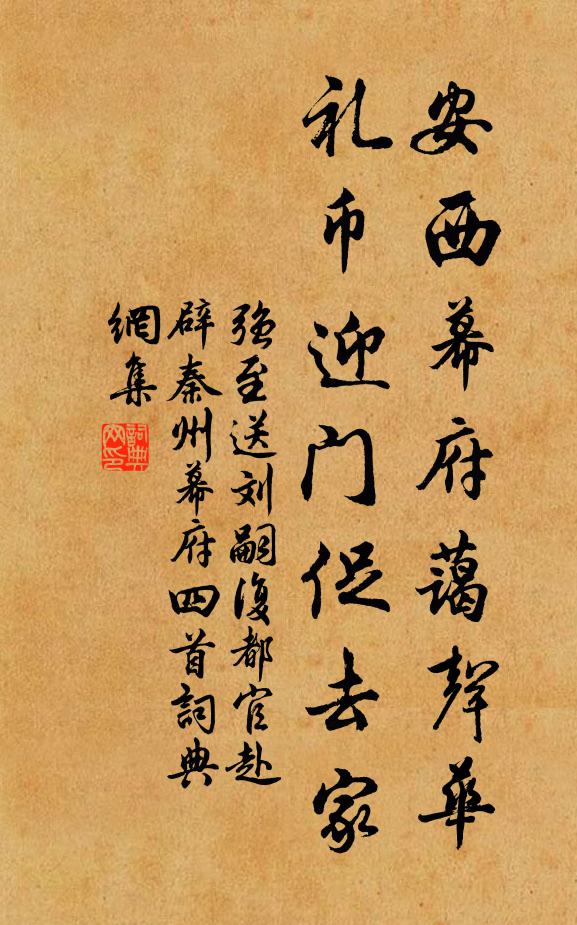 安西幕府蔼聲華
礼币迎门促去家
强至送刘嗣復都官赴
辟秦州幕府四首詞典
網集
詞典
网印